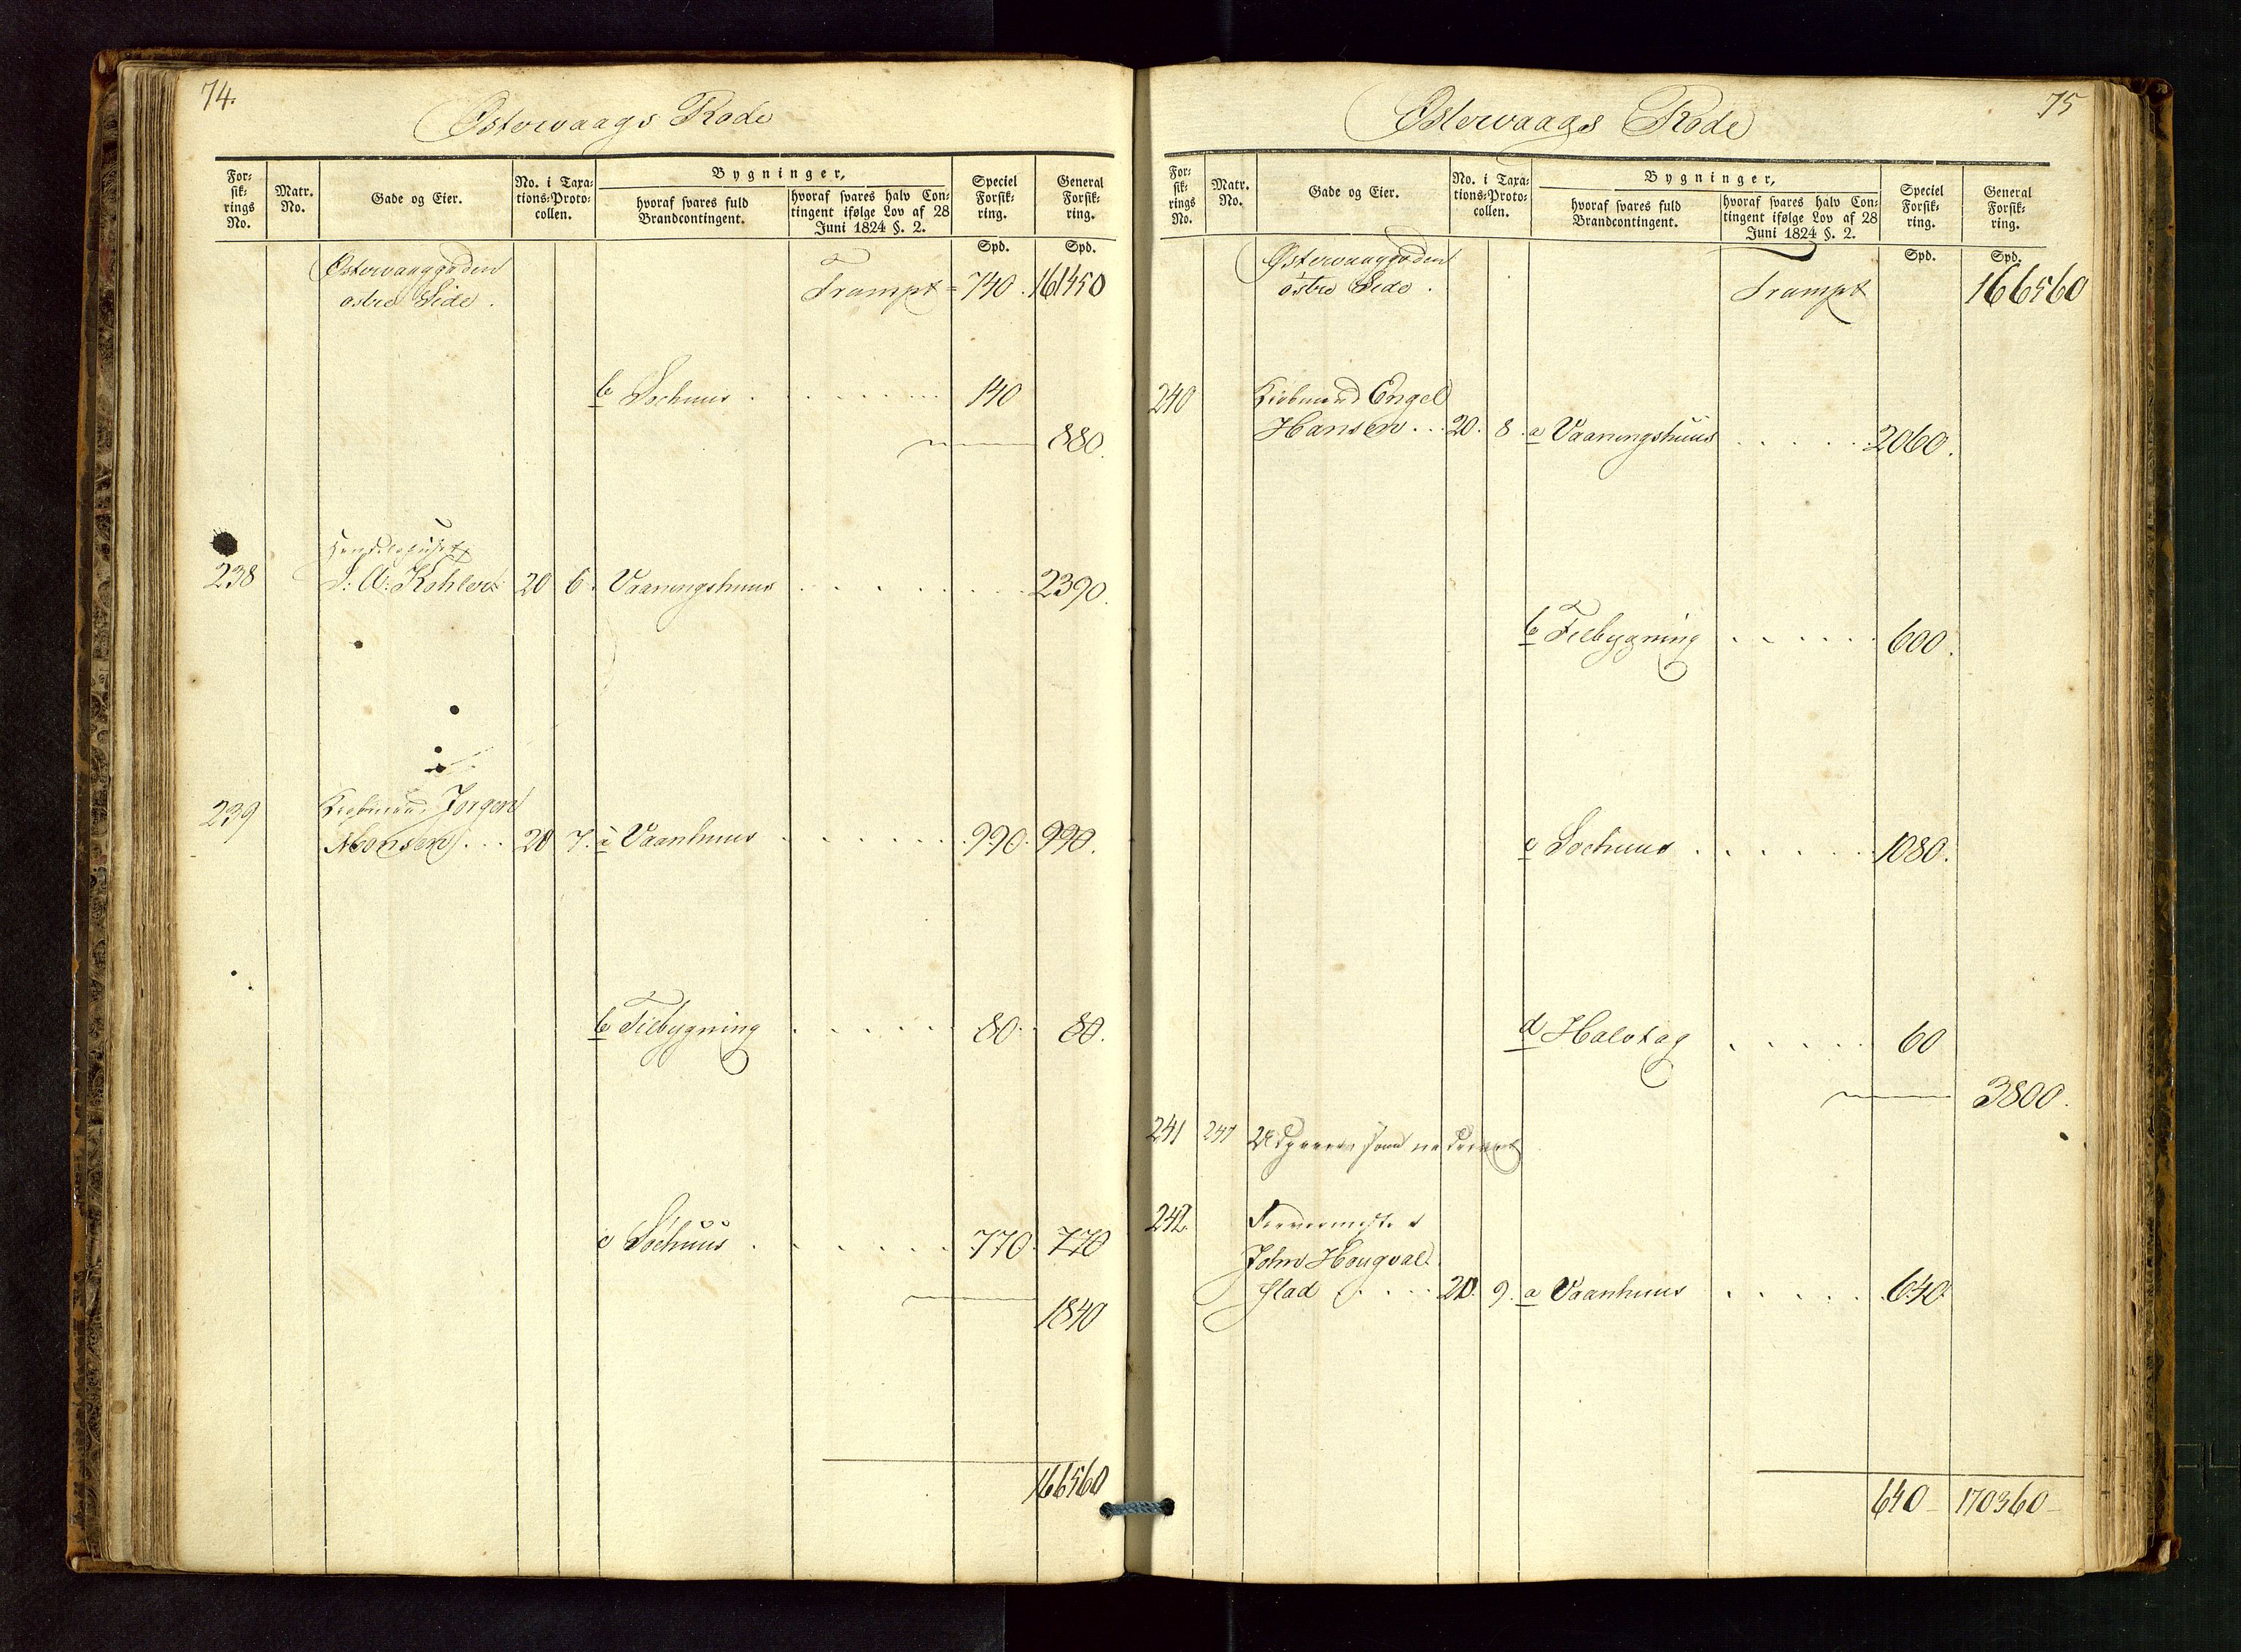 74.
Østervaags Rode
For=
sik=
rings
No.
Matr.
No.
Gade og Eier.
No. i Taxa=
tions=Proto=
collen.
Bygninger,
hvoraf svares fuld
Brandcontingent.
hvoraf svares halv Con=
tingent ifølge Lov af 28
Juni 1824 §. 2.
Speciel
Forsik=
ring.
General
Forsik=
ring.
Spd. Spd.
Østervaaggaden
østre Side. Transpt = 740. 161450
b Søehuus 140
880.
238 S: A: Køhler 20 6. Vaaningshuus 2390.
239 Kiøbmand Jørgen
Monsen 20 7. a Vaanhuus 990. 990.
b Tilbygning 80. 80.
c Søehuus 770. 770
1840
166560
75
Østervaags Rode
For=
sik=
rings
No.
Matr.
No.
Gade og Eier.
No. i Taxa=
tions=Proto=
collen.
Bygninger,
hvoraf svares fuld
Brandcontingent.
hvoraf svares halv Con=
tingent ifølge Lov af 28
Juni 1824 §. 2.
Speciel
Forsik=
ring.
General
Forsik=
ring.
Spd. Spd.
Østervaaggaden
østre Side. Transpt 166560
240 Kiøbmand Engel
Hansen 20. 8. a Vaaningshuus 2060.
b Tilbygning 600.
c Søehuus 1080.
d Halvtag 60
3800.
241 247 Udgaaer som
242.
John Hougval
stad 20. 9. a Vaanhuus 640.
640 170360